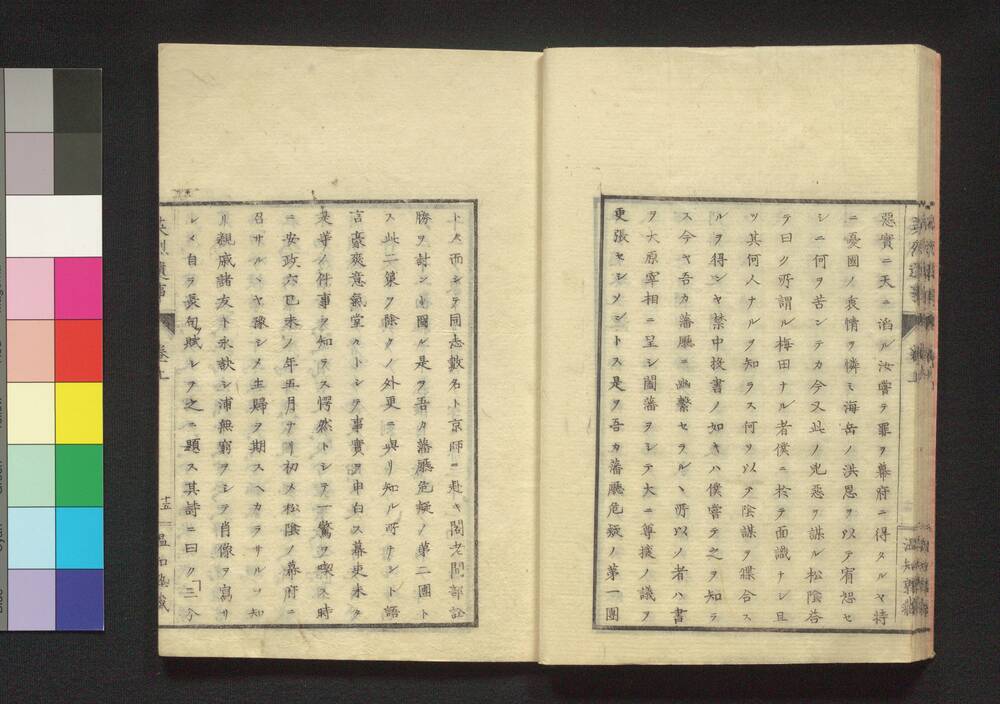 惡實ニ天ニ滔ル汝嘗テ罪ヲ幕府ニ得タルヤ特
ニ憂國ノ衷情ヲ憐ミ海岳ノ洪恩ヲ以テ宥恕セ
シニ何ヲ苦ンテカ今又此ノ兇惡ヲ謀ル松陰荅
テ曰ク所謂ル梅田ナル者僕ニ於テ面識ナシ且
ツ其何人ナルヲ知ラス何ヲ以テ陰謀ヲ牒合ス
ルヲ得ンヤ禁中投書ノ如キハ僕嘗テ之ヲ知ラ
ス今ヤ吾カ藩廳ニ幽繋セラルヽ所以ノ者ハ書
ヲ大原宰相ニ呈シ闔藩ヲシテ大ニ尊攘ノ議ヲ
更張セシメントス是ヲ吾カ藩廳危疑ノ第一團
トス而シテ同志數名ト京師ニ赴キ閣老間部詮
勝ヲ討ンヿヲ圖ル是ヲ吾カ藩廳危疑ノ第二團ト
ス此二策ヲ除クノ外更ニ與リ知ル所ナシト語
言豪爽意氣堂々トシテ事實ヲ申白ス幕吏未タ
是等ノ件事ヲ知ラス愕然トシテ一驚ヲ喫ス時
ニ安政六己未ノ年五月ナリ初メ松陰ノ幕府ニ
召サルヽヤ豫シメ生歸ヲ期スヘカラサルヲ知
リ親戚諸友ト永訣シ浦無窮ヲシテ肖像ヲ寫サ
シメ自ラ長句ヲ賦シテ之ニ題ス其詩ニ曰ク「三分